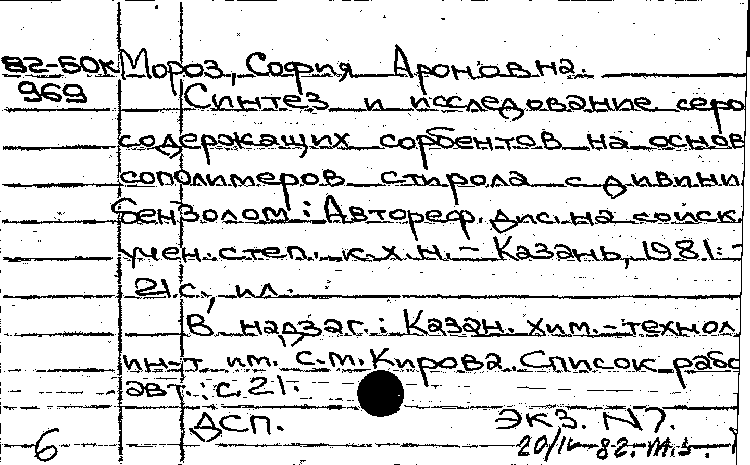 82-БОК Мороз, София Ароновна.
969 Синтез и исследование серо
содержащих сорбентов на основ
сополимеров стирола с дивини
бензолом : Автореф. дис. на соиск.
учен. степ. к.х.н. - Казань, 1981. -
21 с., ил.
В надзаг.: Казан. хим.-технол
ин-т им. С.М. Кирова. Список рабо
авт.: с. 21.
ДСП. ЭКЗ. N7.
6 20/IV-82